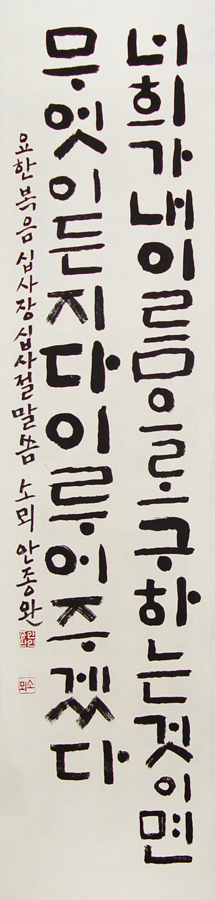 너희가내이름으로구하는것이면
무엇이든지다이루어주겠다
요한복음십사장십사절말씀 소뫼 안종완